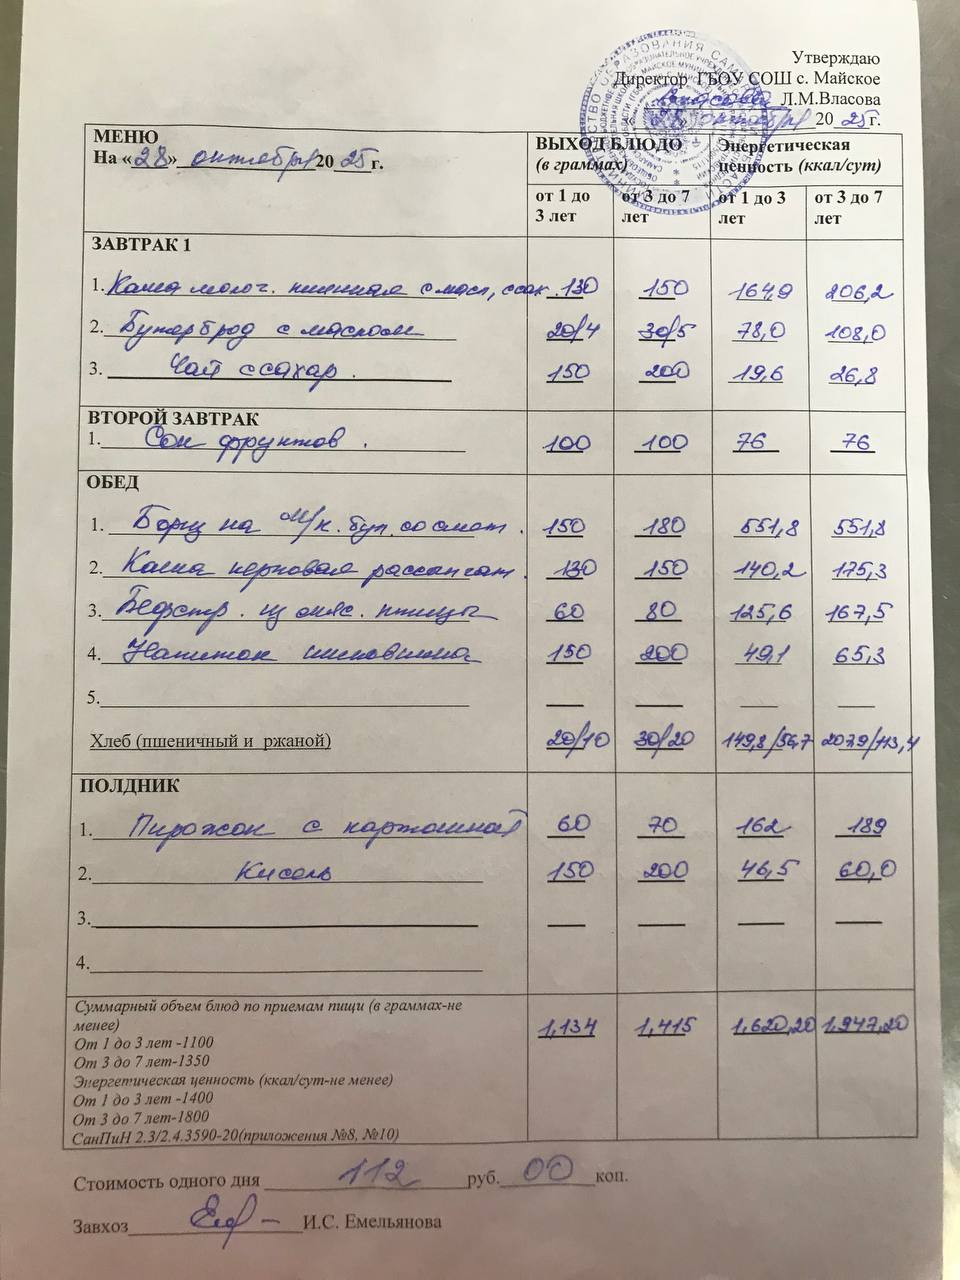 Утверждаю
Директор ГБОУ СОШ с. Майское
Л.М.Власова
октября 2025г.
МЕНЮ
На «28» октября 2025г.
ВЫХОД БЛЮДО
(в граммах)
Энергетическая
ценность (ккал/сут)
от 1 до 3 лет
от 3 до 7 лет
от 1 до 3 лет
от 3 до 7 лет
ЗАВТРАК 1
1. Каша молоч. пшенная с масл, с сах. 130 150 164,9 206,2
2. Бутерброд с маслом 20/4 30/5 78,0 108,0
3. Чай с сахар. 150 200 19,6 26,8
ВТОРОЙ ЗАВТРАК
1. Сок фруктов. 100 100 76 76
ОБЕД
1. Борщ на м/к. бул. со смет. 150 180 551,8 551,8
2. Каша перловая рассыпчат. 130 150 140,2 175,3
3. Бефстр. из мяс. птицы 60 80 125,6 167,5
4. Напиток шиповника 150 200 49,1 65,3
5.
Хлеб (пшеничный и ржаной) 20/10 30/20 149,8/56,7 207,9/113,4
ПОЛДНИК
1. Пирожок с картошкой 60 70 162 189
2. Кисель 150 200 46,5 60,0
3.
4.
Суммарный объем блюд по приемам пищи (в граммах-не
менее) 1,134 1,415 1,620,20 1,947,20
От 1 до 3 лет -1100
От 3 до 7 лет-1350
Энергетическая ценность (ккал/сут-не менее)
От 1 до 3 лет -1400
От 3 до 7 лет-1800
СанПиН 2.3/2.4.3590-20(приложения №8, №10)
Стоимость одного дня 112 руб. 00 коп.
Завхоз И.С. Емельянова